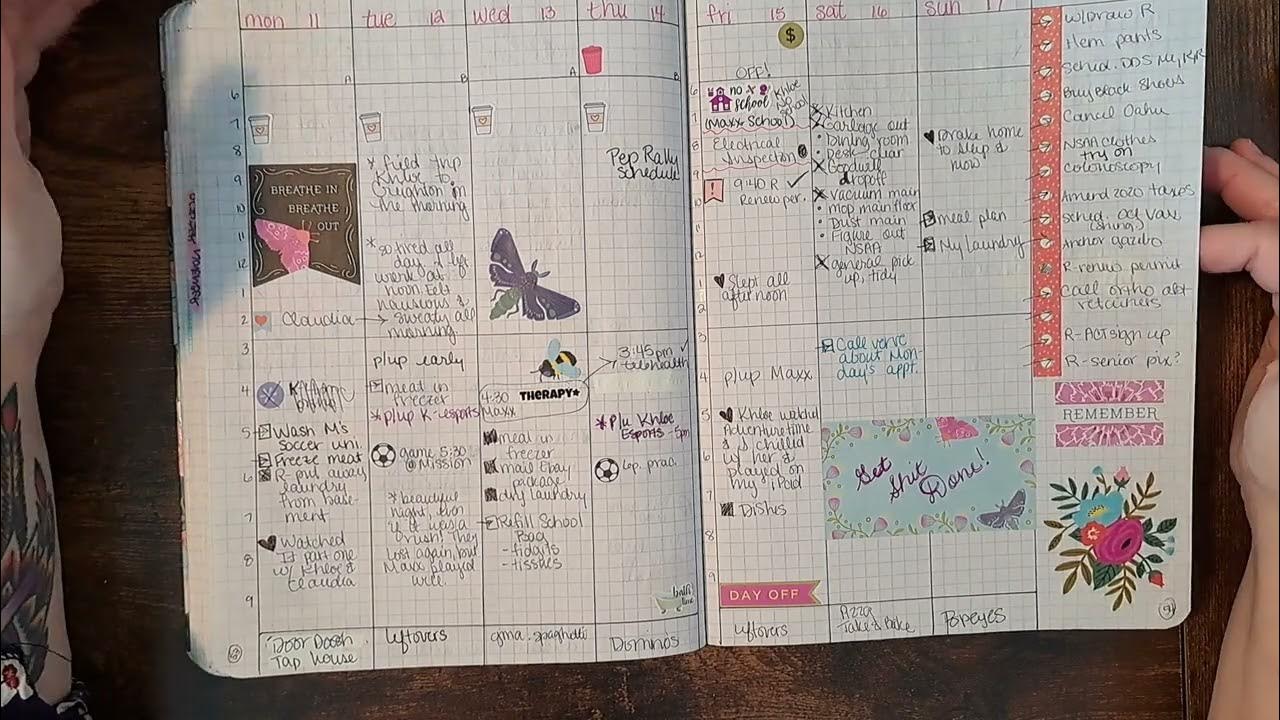 mon 11
tue 12
wed 13
thu 14
fri 15
sat 16
sun 17
A
B
A
B
6
7
8
9
10
11
12
1
2
3
4
5
6
7
8
9
BREATHE IN
BREATHE
OUT
Claudia
Wash M's
soccer uni.
Freeze meat
R-put away
laundry
from base
ment
Watched
IT part one
w/ Khloe &
Claudia
Door Dash
Tap House
* field trip
Khloe to
Creighton in
the morning
* so tired all
day. I left
work at
noon. Felt
nauseous &
sweaty all
morning
p/up early
meat in
freezer
* p/up K-esports
game 5:30
@ Mission
* beautiful
night, even
if it was a
They
lost again, but
Maxx played
well.
leftovers
4:30
Maxx
THERAPY*
meal in
freezer
mail Ebay
package
dry laundry
Refill School
Bag
- fidgits
- tissues
gma. spaghetti
Pep Rally
schedule
3:45pm
telehealth
* P/u Khloe
Esports - 5pm
6p. prac.
bath
time
Dominos
$
OFF!
no
school
Khloe
No
School
(Maxx School)
Electrical
Inspection
9:40 R
Renew per.
Slept all
afternoon
p/up Maxx
Khloe watched
Adventure time
& I chilled
w/ her &
played on
my iPad
Dishes
DAY OFF
leftovers
6
7
8
9
10
11
12
1
2
3
4
5
6
7
8
9
Kitchen
Garbage out
Dining room
Desk clear
Goodwill
dropoff
vacuum main
mop main floor
Dust main
Figure out
NSAA
general pick
up, tidy
Call verve
about Mon-
day's appt.
Get
Shit
Done!
Pizza
Take & Bake
Drake home
to sleep &
mow
meal plan
My laundry
Popeyes
w/Draw R
Hem pants
Sched. DDS Me, K, R
Buy Black Shoes
Cancel Oahu
NSAA clothes
try on
Colonoscopy
Amend 2020 taxes
Anchor gazebo
R-renew permit
Call ortho abt
retainers
R-ACT sign up
R-senior pix?
REMEMBER